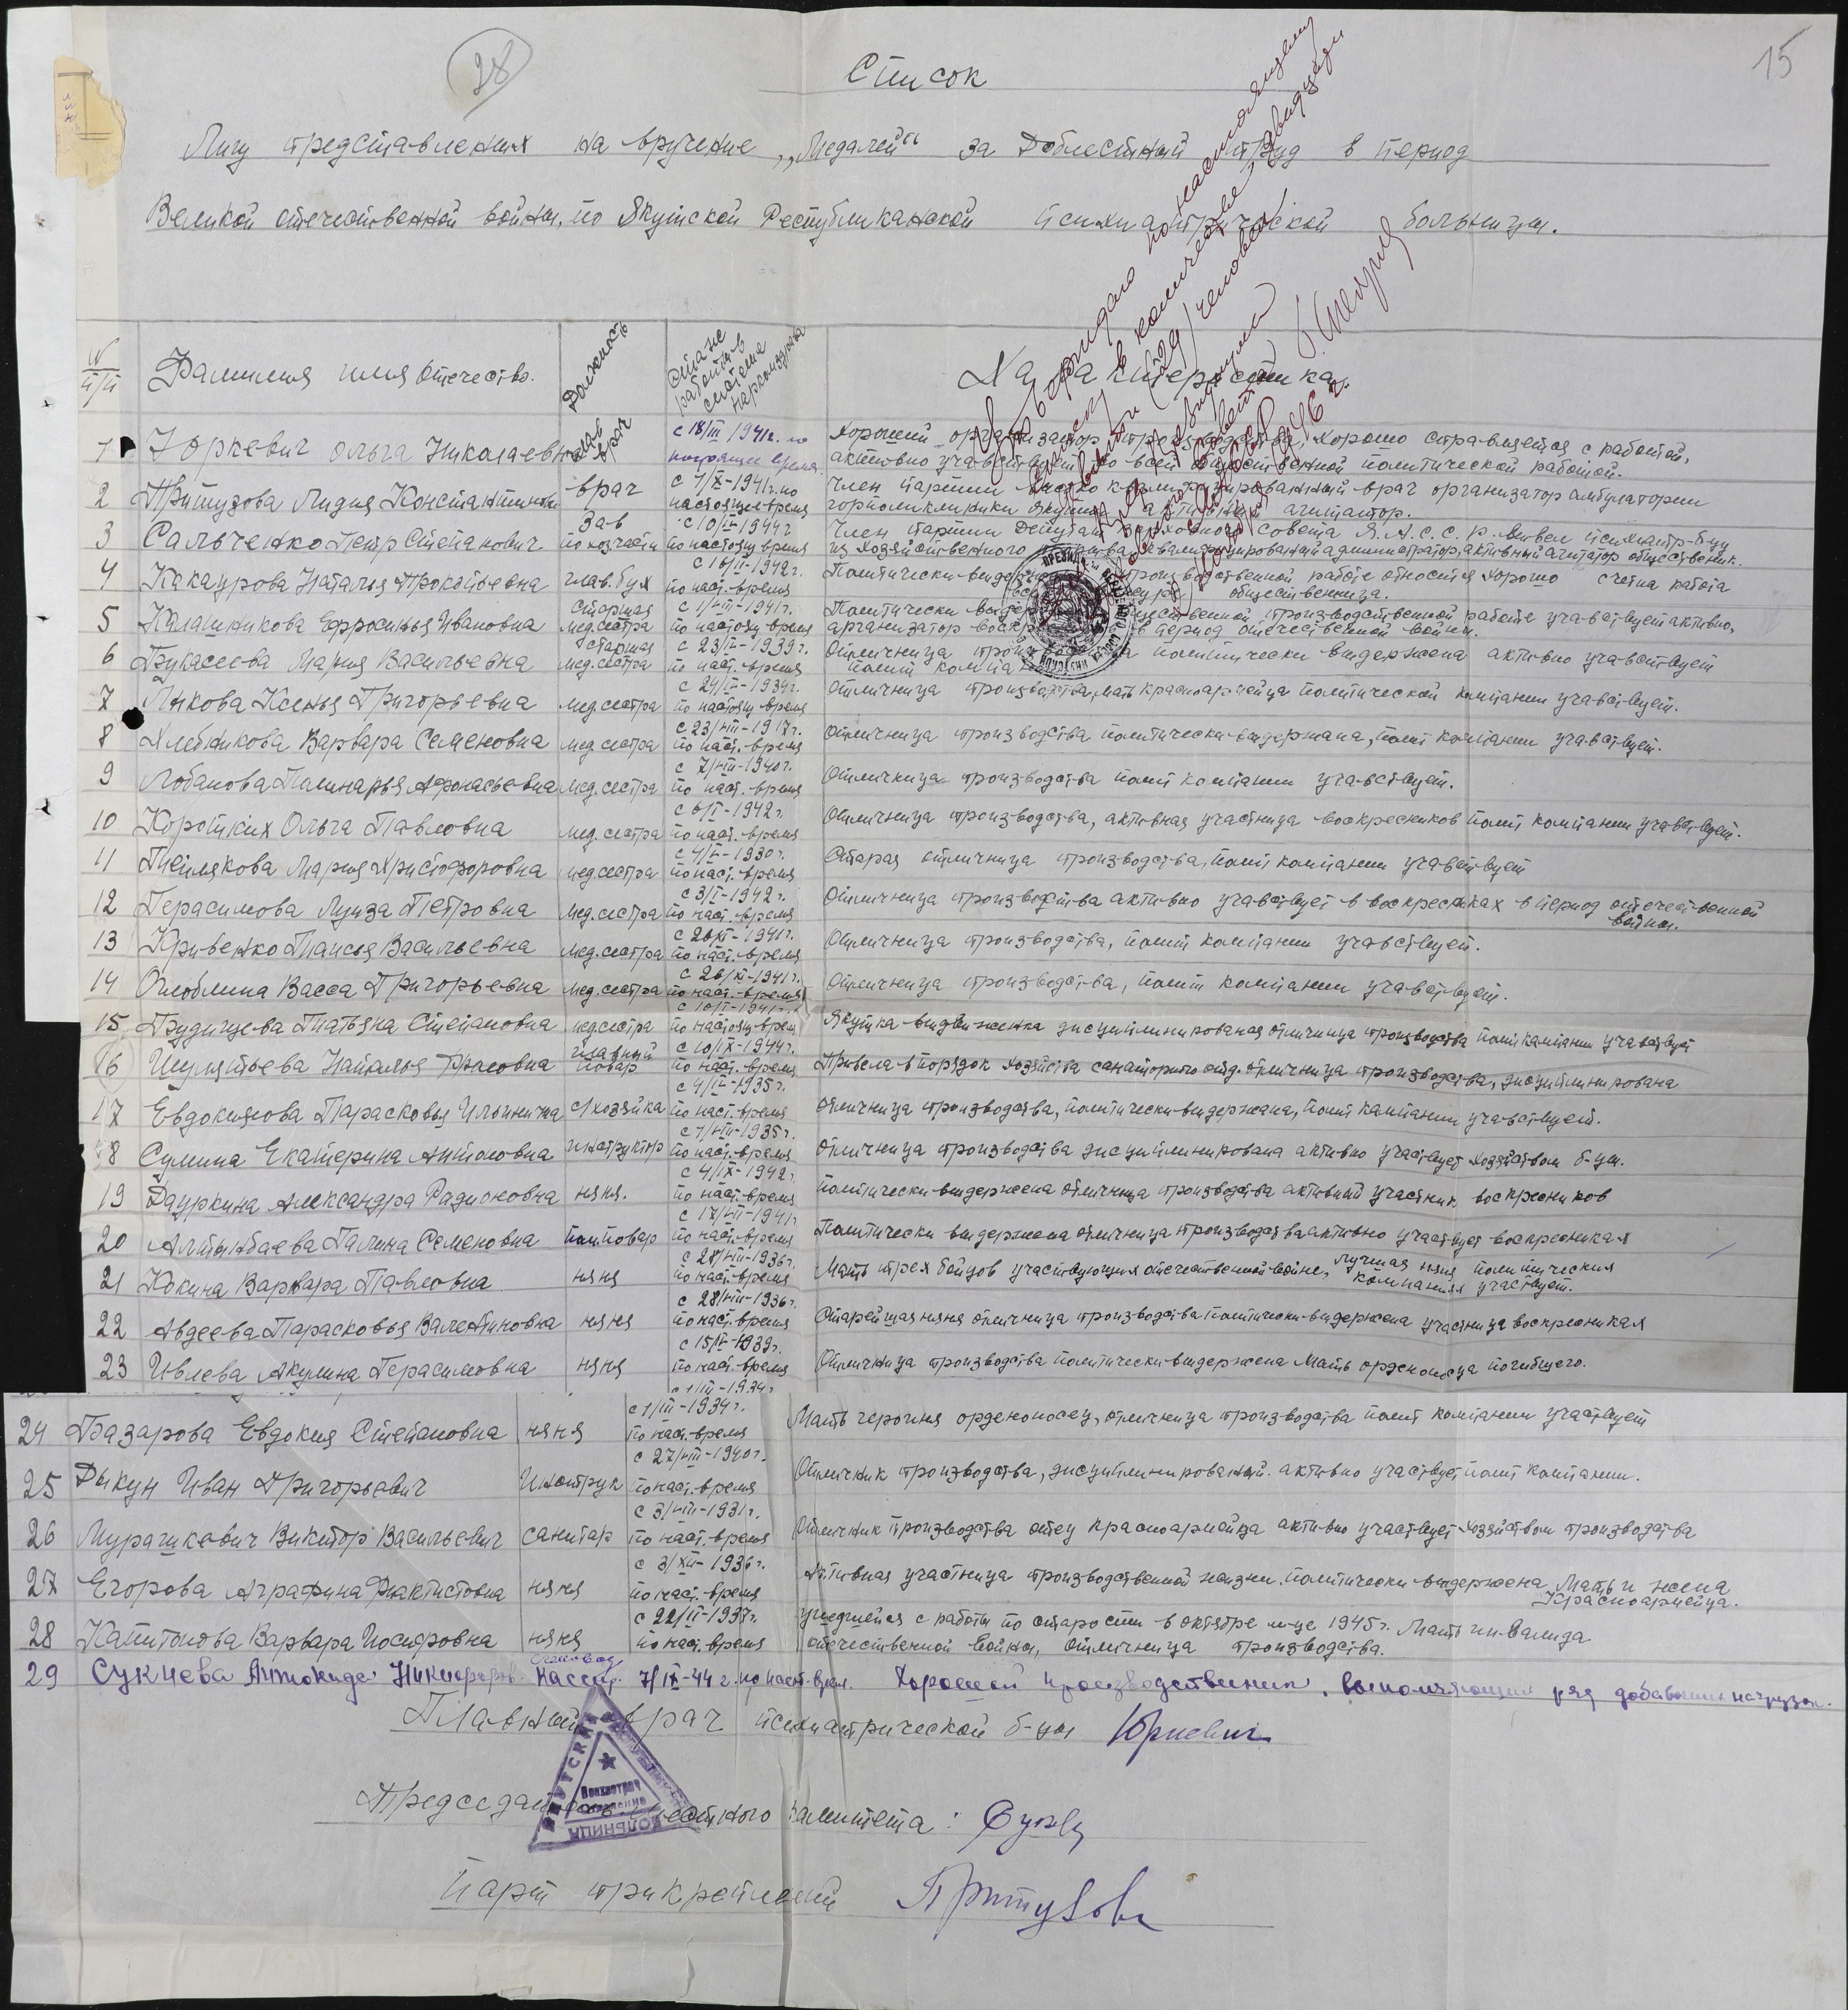 28
15
Список
Лиц представленных на вручение „Медалей“ за Доблестный труд в период
Великой отечественной войны, по Якутской Республиканской психиатрической больницы.
Утверждаю по настоящему
списку в количестве двадцати
девяти (29) человек.
1946 г.
№ п/п
Фамилия имя отечество.
Должность
Стаже работы в системе наркомздрава
Характеристика.
1 Юркевич Ольга Николаевна глав врач с 18/III 1941г. по настоящее время. Хороший организатор производства, хорошо справляется с работой,
активно учавствует во всей общественной политической работой.
2 Притузова Лидия Константин врач с 1/X-1941г. по настоящее время Член партии врач организатор амбулатории
горполиклиники активный агитатор.
3 Сальченко Петр Степанович Зав по хозчасти 1944г по настоящ время Член партии Депутат совета Я.А.С.С.Р. вывел психиатр-б-цу
из хозяйственного квалифицированный администратор, активный агитатор общественник.
4 Какаурова Наталья Прокопьевна глав.бух 1942г. по наст. время Политически-выдержена производственной работе относится хорошо счетна работа
общественница.
5 Калашникова Ефросинья Ивановна старшая мед.сестра с 1/VIII-1941г. по настоящ время Политически общественной, производственной работе учавствует активно,
организатор в период отечественной войны.
6 Букасеева Мария Васильевна старшая мед.сестра 1939г. по наст. время Отличница политически выдержена активно учавствует
полит
7 Лыкова Ксенья Григорьевна мед сестра 1934г. по настоящ время Отличница производства, мать красноармейца политической компании учавствует.
8 Хлебникова Варвара Семеновна мед. сестра с 23/VIII-1917г. по наст. время Отличница производства политически-выдержана, полит компании учавствует.
9 Лобанова Полинарья Афонасьевна мед.сестра с 7/VIII-1940г. по наст. время Отличница производства полит компании учавствует.
10 Коротких Ольга Павловна мед. сестра 1942г. по наст. время Отличница производства, активная участница воскресников полит компании учавствует.
11 Теплякова Мария Христофоровна мед.сестра 1930г. по наст. время Старая отличница производства, полит компании учавствует
12 Герасимова Луиза Петровна мед.сестра с 3/I-1942г. по наст. время Отличница производства активно учавствует в воскресниках в период отечественной
войны.
13 Кривенко Таисья Васильевна мед.сестра 1941г. по наст. время Отличница производства, полит компании учавствует.
14 Оглоблина Васса Григорьевна мед.сестра с 26/XI-1941г. по наст. время Отличница производства, полит компании учавствует.
15 Будищева Татьяна Степановна мед.сестра 1941г. по настоящ врем Якутка-выдвиженка дисциплинированая отличница производства полит кампании учавствует
16 Шумятьева Наталья Фрасовна главный повар с 10/IX-1944г. по наст. время Привела-в порядок хозяйства санаторного отд. отличница производства, дисциплинирована
17 Евдокимова Парасковья Ильинична с/хозяйка 1935г. по наст. время отличница производства, политически-выдержана, полит кампании учавствует.
18 Сумина Екатерина Антоновна инструктор с 7/VIII-1935г. по наст. время отличница производства дисциплинирована активно участвует хозяйством б-цы.
19 Дауркина Александра Радионовна няня. с 4/IX-1942г. по наст. время политически-выдержена отличница производства активный участник воскресников
20 Алтынбаева Галина Семеновна пом.повар с 17/VII-1941г по наст. время Политически выдержена отличница производства активно участвует воскресниках
21 Кокина Варвара Павловна няня с 28/VIII-1936г. по наст. время Мать трех бойцов участвующих отечественной войне, лучшая няня политических
компаниях участвует.
22 Авдеева Парасковья Валентиновна няня с 28/VIII-1936г. по наст. время Старейшая няня отличница производства политически-выдержена участница воскресниках
23 Ивлева Акулина Герасимовна няня 1939г. по наст. время Отличница производства политически-выдержена Мать орденоносца погибшего.
24 Базарова Евдокия Степановна няня с 1/III-1934г. по наст. время Мать героиня орденоносец, отличница производства полит компании участвует
25 Дыкун Иван Григорьевич Инструк с 27/VIII-1940г. по наст. время Отличник производства, дисциплинированый. активно участвует полит компании.
26 Мурашкевич Виктор Васильевич санитар с 3/VIII-1931г. по наст. время Отличник производства отец красноармейца активно участвует хозяйством производства
27 Егорова Аграфина Фиактистовна няня с 3/XII-1936г. по наст. время Активная участница производственной жизни. политически-выдержена Мать и жена
Красноармейца.
28 Капитонова Варвара Иосифовна няня с 22/II-1937г. по наст. время ушедшейся с работы по старости в октябре м-це 1945г. Мать инвалида
отечественной войны, отличница производства.
29 Сукнева Антонида Никифоров. Счетовод Кассир. 7/IX-44г. по наст. врем. Хороший производственник, выполняющий ряд добавочных нагрузок.
Главный врач психиатрической б-цы Юркевич
Председатель местного Комитета:
Парт прикрепленный Притузова